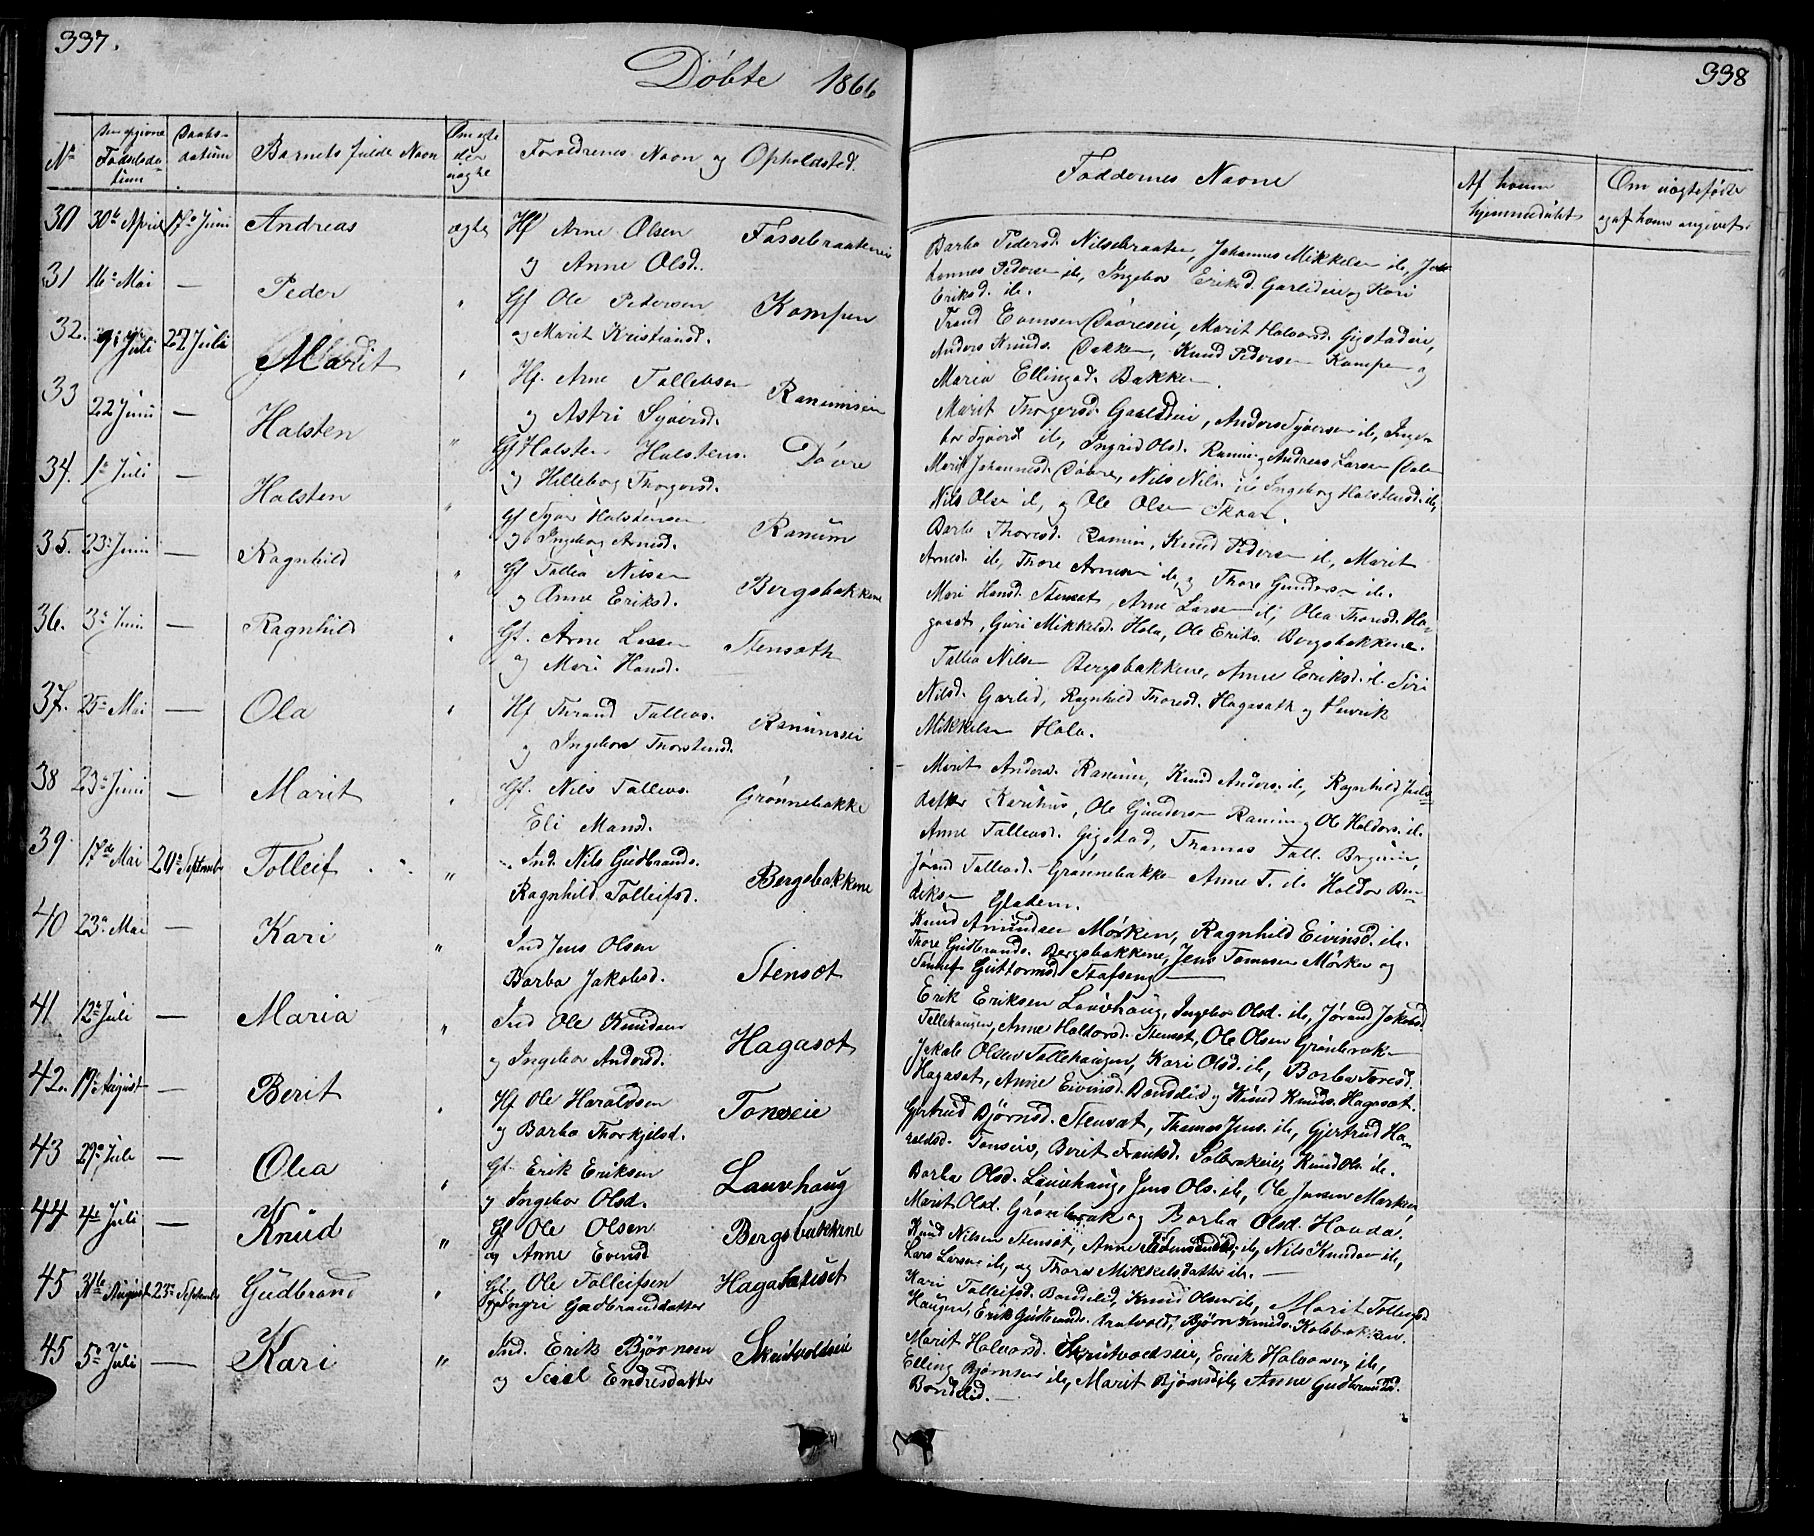 337.
Døbte 1866
No
Den opgivne Fødselsdatum
Daabsdatum
Barnets fulde Navn
Om ægte eller uægte
Forældrenes Navn og Opholdsted.
30 30te April 17de Juni Andreas ægte Hf Arne Olsen Fossebraateneie
og Anne Olsd.
31 16de Mai — Peder " Gf Ole Pedersen Kampen
og Marit Kristiansd.
32. 9de Juli 22 Juli Marit " Hf. Arne Tollefsen Ranumseie
og Astri Syversd.
33 22 Juni — Halsten " Gf Halsten Halstens. Døvre
og Hilleborg Thorgersd.
34. 1de Juli — Halsten " Gf Syver Halstensen Ranum
og Ingeborg Arnesd.
35. 23de Juni — Ragnhild " Gf Tollev Nilsen Bergsbakkene
og Anne Eriksd.
36. 3de Juni — Ragnhild " Gf. Arne Larsen Stensæth
og Mari Hansd.
37. 25de Mai — Ola " Hf Thrand Tollevs. Ranumseie
og Ingebor Thorstensd.
38 23de Juni — Marit " Gf. Nils Tollevs. Grønnebakke
Eli Mansd.
39. 17de Mai 20de September Tolleif " Ind. Nils Gudbrands. Bergsbakkene
Ragnhild Tolleifsd.
40 23de Mai — Kari " Ind Jens Olsen Stensæt
Barbo Jakobsd.
41 12te Juli — Maria " Ind Ole Knudsen Hagasæt
og Ingebor Andersd.
42. 19de August — Berit " Hf Ole Haraldsen Tonseie
og Barbo Thorkjelsd.
43 29de Juli — Olea " Gf. Erik Eriksen Lauvhaug
og Ingebor Olsd.
44 4de Juli — Knud " Gf Ole Olsen Bergsbakkene
og Anne Evensd
45 31te August 23de September Gudbrand " Gf. Ole Tolleifsen Hagasæt
og Ingri Gudbranddatter
45 5te Juli — Kari " Ind. Erik Bjørnsen Skrutvoldseie
og Sicel Endresdatter
338
Faddernes Navne
Af hvem hjemmedøbt
Om uægtefødte og af hvem angivet.
Barbo Pedersd. Nilsebraaten, Johannes Mikkelsen ib, Johannes Pedersen ib, Ingebor Eriksd. Garlideie og Kari
Eriksd. ib.
Trond Tomsen Døvreseie, Marit Halvorsd. Gigstadeie,
Anders Knuds. Bakken, Knud Pedersen Kampen og
Maria Ellingsd. Bakken.
Marit Thorgersd. Garlideie, Anders Syversen ib, Ingebor Syversd ib, Ingrid Olsd. Ranum og Andreas Larsen
Marit Johannesd. Døvre, Nils Nils. ib Ingeborg Halstensd. ib,
Nils Olsen ib, og Ole Olsen Skaar.
Barbo Thoresd. Ranum, Knud Pedersen ib, Marit
Arnesd. ib, Thore Arnesen ib, og Thore Gundersen ib.
Mari Hansd. Stensæt, Arne Larsen ib, Olea Thoresd. Hagasæt, Guri Mikkelsd. Hola, Ole Eriks. Bergsbakkene.
Tollev Nilsen Bergsbakkene, Anne Eriksd. ib. Siri
Nilsd. Garlid, Ragnhild Thoresd. Hagasæth og Henrik
Mikkelsen Hola.
Marit Anders. Ranum, Knud Anders. ib, Ragnhild
Karihus, Ole Gundersen Ranum og Ole Haldors. ib.
Anne Tollevsd. Gigstad, Thomas Toll. Brynum,
Jørand Tollevsd. Grønnebakke Anne T. ib Haldor Bendiksen Gladem.
Knud Amundsen Mørken, Ragnhild Eivinsd. ib.
Thore Gudbrands. Bergsbakkene, Jens Tomesen Mørken og
Guttormsd. Stafseng
Erik Eriksen Lauvhaug, Ingebor Olsd. ib, Jørand Jakobsd.
Tollehaugen, Anne Haldorsd. Stensæt, Ole Olsen Grønbræk
Jakob Olsen Tollehaugen, Kari Olsd. ib, Barbo Toresd.
Hagasæt, Anne Eivinsd. Bondelid og Knud Knuds. Hagasæt.
Gjertrud Bjørnsd. Stensæt, Thomas Jens. ib, Gjertrud Haraldsd. Tonseie, Berit Frantsd. Solbrækeie, Knud Ols. ib.
Barbo Olsd. Lauvhaug, Jens Ols. ib, Ole Jensen Mørken
Marit Olsd. Grønbræk og Barbo Olsd. Hovda.
Knud Nilsen Stensæt, Anne ib, Nils Knudsen ib,
Lars Larsen ib, og Thora Mikkelsdatter ib.
Kari Tolleifsd. Bondelid, Knud Olsen ib, Marit Tolleifsd
Haugen, Erik Gudbrands. Bratvold, Bjørn Knuds. Kolsbakken.
Marit Halvorsd. Skrutvoldseie, Erik Halvorsen ib,
Elling Bjørnsen ib, Marit Bjørnsd ib, Anne Gudbrandsd.
Bondelid.